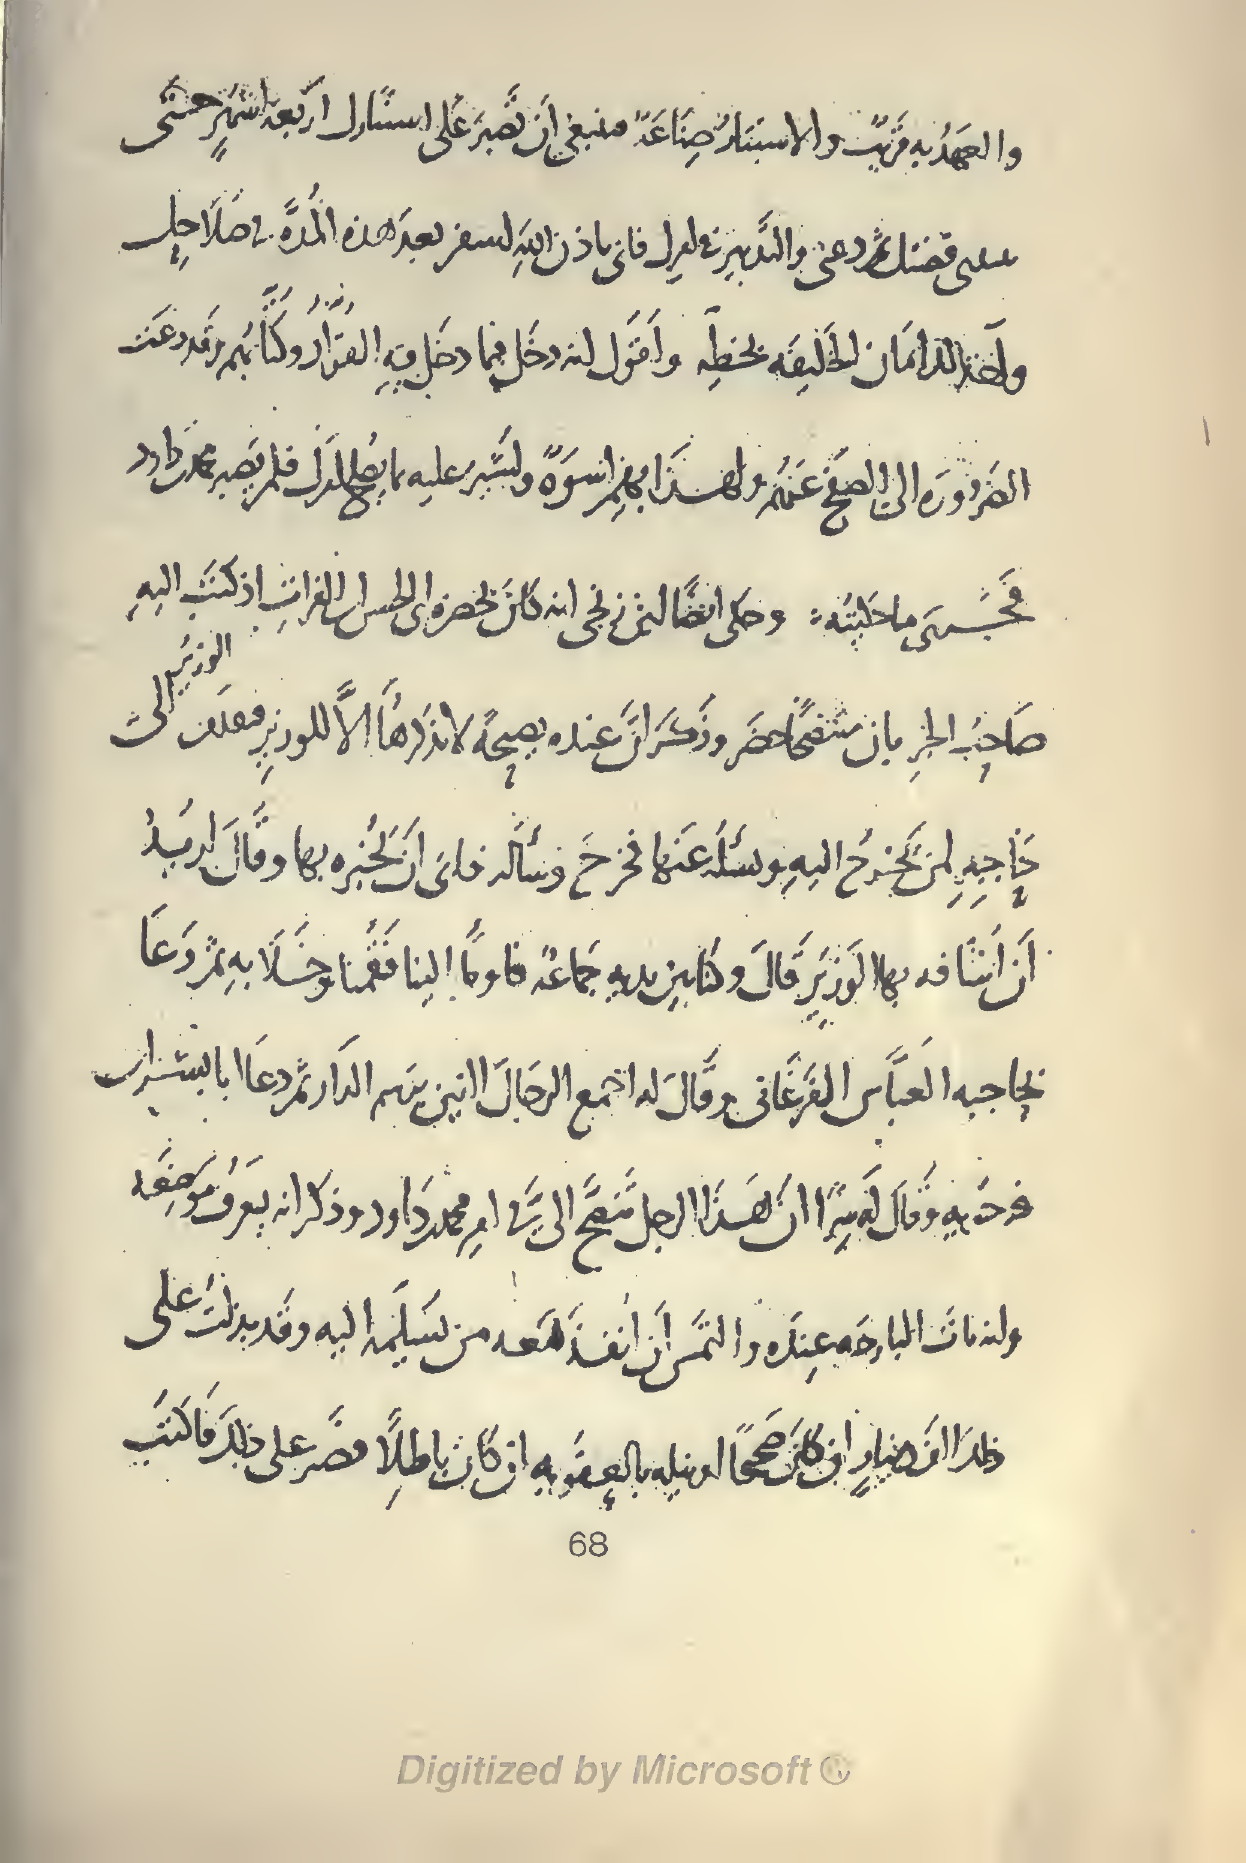 والعهد به قريب والاستتار صناعة فينبغي ان تصبر على استتارك اربعة اشهر حتى
قصتك ثم دعني والتدبير في امرك فاني باذن الله اسفر بعد هذه المدة في صلاحك
واخذ لك امان الخليفة بخطه واقول انه دخل فيما دخل فيه القواد وكتابهم وقد دعت
الضرورة الى الصفح عنهم ولهذا بهم اسوة واشير عليه بما يصلح امرك فلم يصبر محمد بن داود
فجرى ما حكيته وحكى ايضا انه كان بحضرة ابي الحسن بن الفرات اذ كتب اليه
صاحب الخبر بان متنصحا حضر وذكر ان عنده نصيحة لا يذكرها الا للوزير فتقدم الوزير الى
حاجبه لمن يخرج اليه ويسئله عنها فخرج وسأله فابى ان يخبره بها وقال اريد
ان اشافه بها الوزير قال وكنا بين يديه جماعة فاومأ الينا فقمنا وخلا به ثم دعا
بحاجبه العباس الفرغاني وقال له اجمع الرجال الذين برسم الدار ثم دعا ابا بشر ابن
فرخويه وقال له سرا ان هذا الرجل تنصح الي في امر محمد بن داود وذكر انه يعرف موضعه
وانه بات البارحة عنده والتمس ان انفذ معه من يسلمه اليه وقد بذلت على
ذلك الف دينار ان كان صحيحا او نيله بالعقوبة ان كان باطلا فصر على ذلك فاكتب
68
Digitized by Microsoft ®